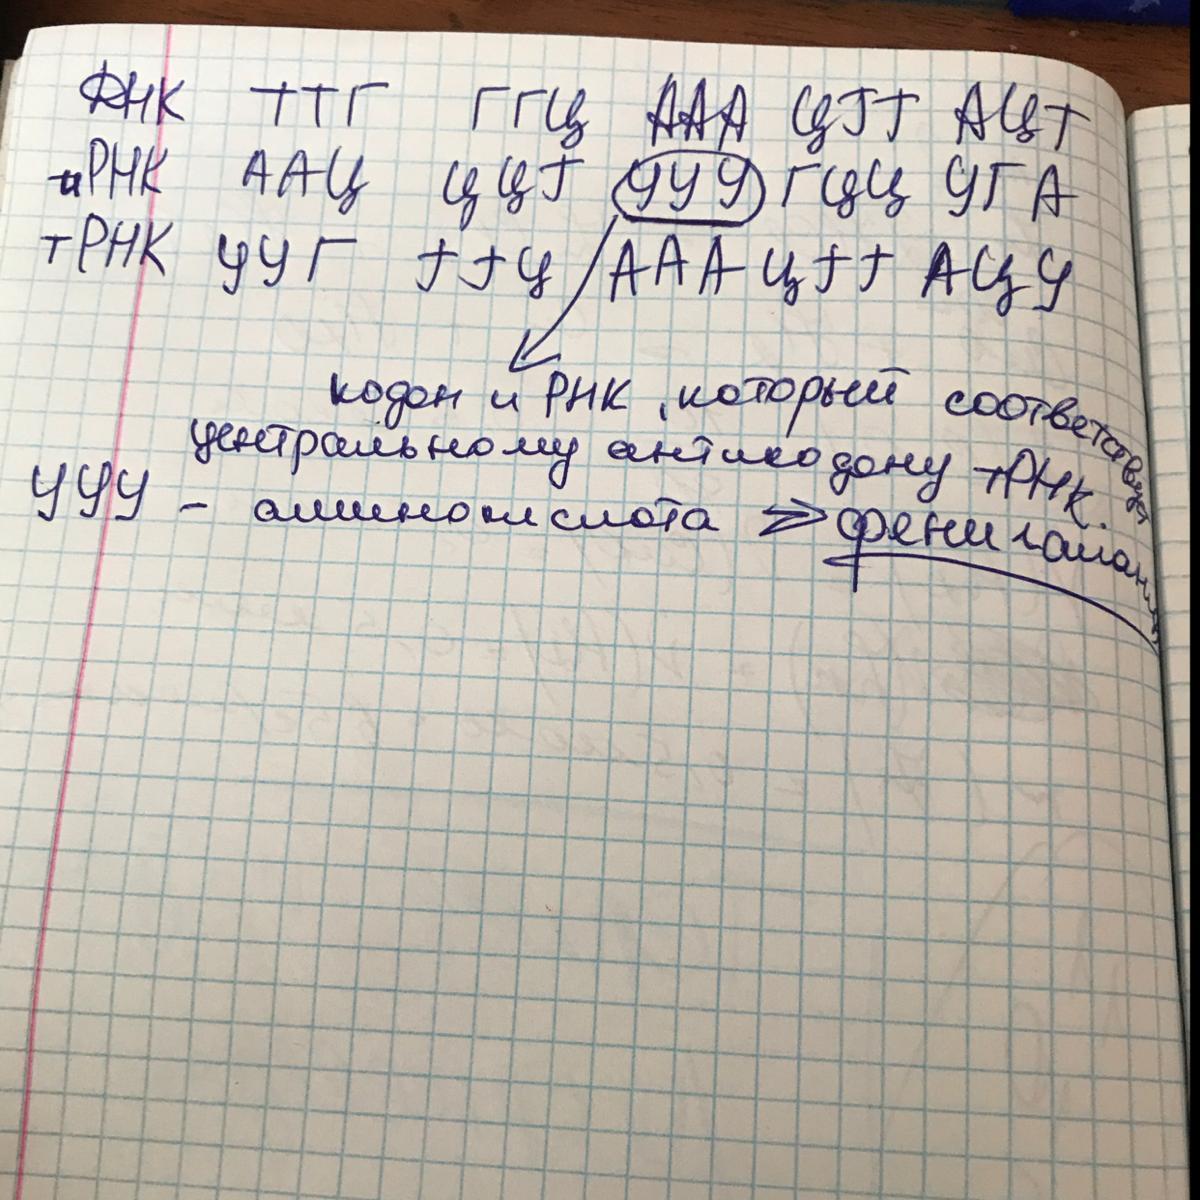 ДНК ТТГ ГГЦ ААА ЦГГ АЦТ
иРНК ААЦ ЦЦГ УУУ ГЦЦ УГА
тРНК УУГ ГГЦ ААА ЦГГ АЦУ
кодон иРНК, который соответствует
центральному антикодону тРНК.
УУУ - аминокислота => фенилаланин